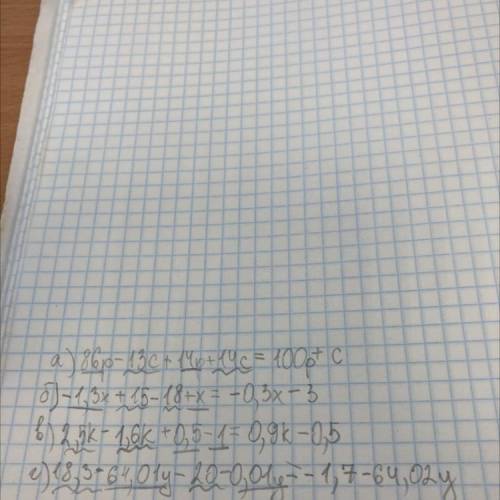 а) 86р-13с+14р+14с = 100р+ с
б) -1,3х+15-18+х= -0,3х-3
в) 2,5k-1,6k+0,5-1= 0,9k-0,5
г) 18,3-64,01у-20-0,01у= -1,7-64,02у